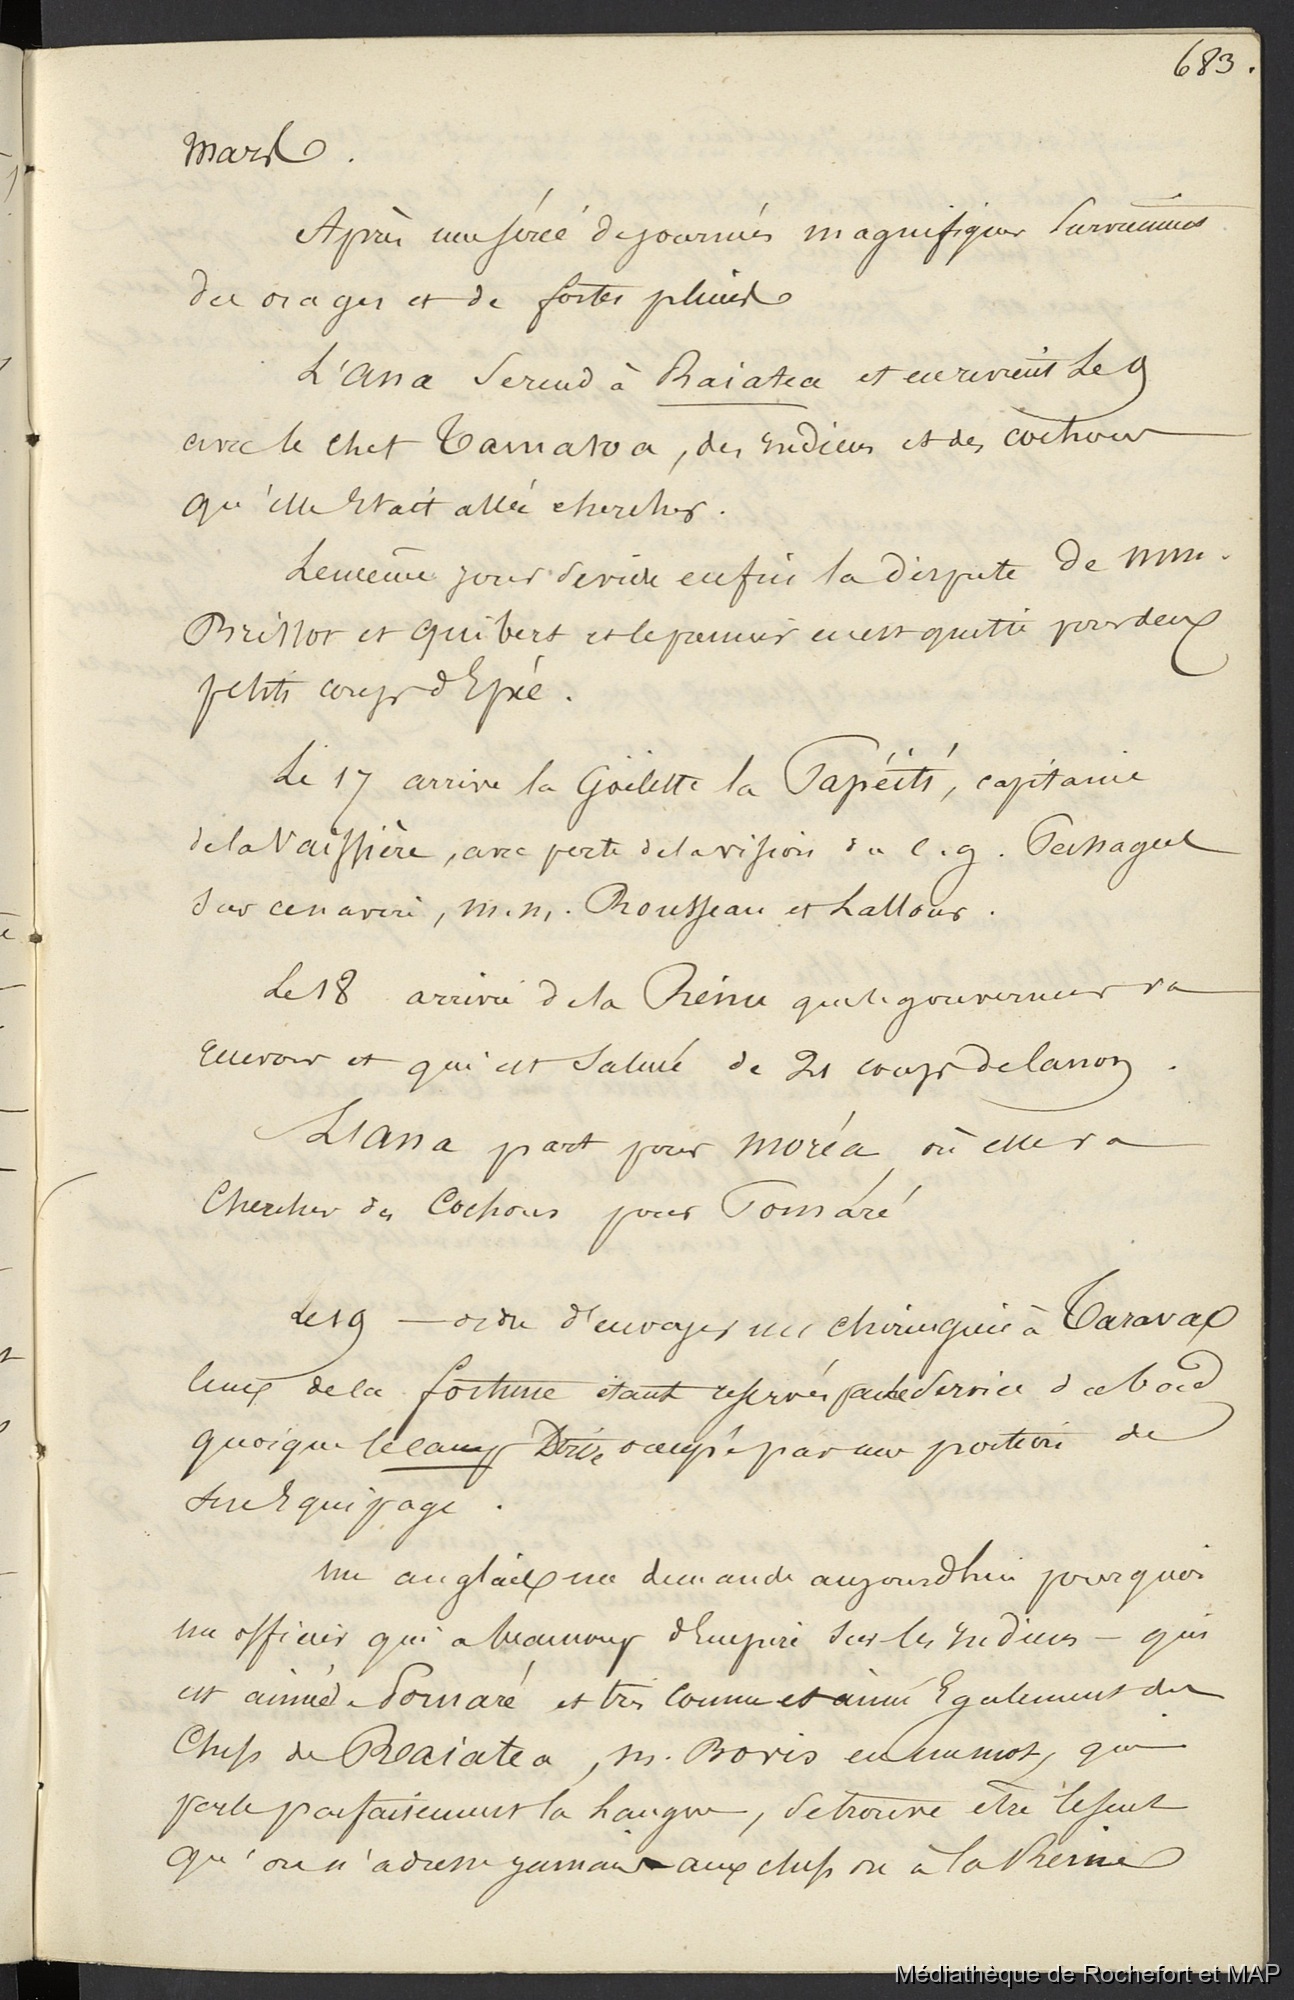 683.
Mars.
Après une série de journées magnifiques surviennent
des orages et de fortes pluies
L'Ana se rend à Raiatea et en revient le 9
avec le chef Tamatoa, des indiens et des cochons
qu'elle était allée chercher.
Le même jour se vide enfin la dispute de MM.
Brissot et Guibert et le premier en est quitte pour deux
petits coups d'Epée.
Le 17 arrive la Goëlette la Papéiti, capitaine
de la Vaissière, avec perte de la vision du c. g. Passagers
sur ce navire, M.M. Rousseau et Lallour.
Le 18 arrivée de la Reine que le gouverneur va
recevoir et qui est saluée de 21 coups de canon.
L'Ana part pour Moréa où elle va
chercher des Cochons pour Pomaré
Le 19 — ordre d'envoyer un chirurgien à Taravao
ceux de la fortune étant reservés pour le service du bord
quoique le camp soit occupé par une portion de
son Equipage.
Un anglais me demande aujourdhui pourquoi
un officier qui a beaucoup d'Empire sur les indiens — qui
est aimé de Pomaré et très connu et aimé Egalement des
Chefs de Raiatea, M. Boris en un mot, qui
parle parfaitement la langue, se trouve être le seul
qu'on n'adresse jamais aux chefs ou à la Reine
Médiathèque de Rochefort et MAP